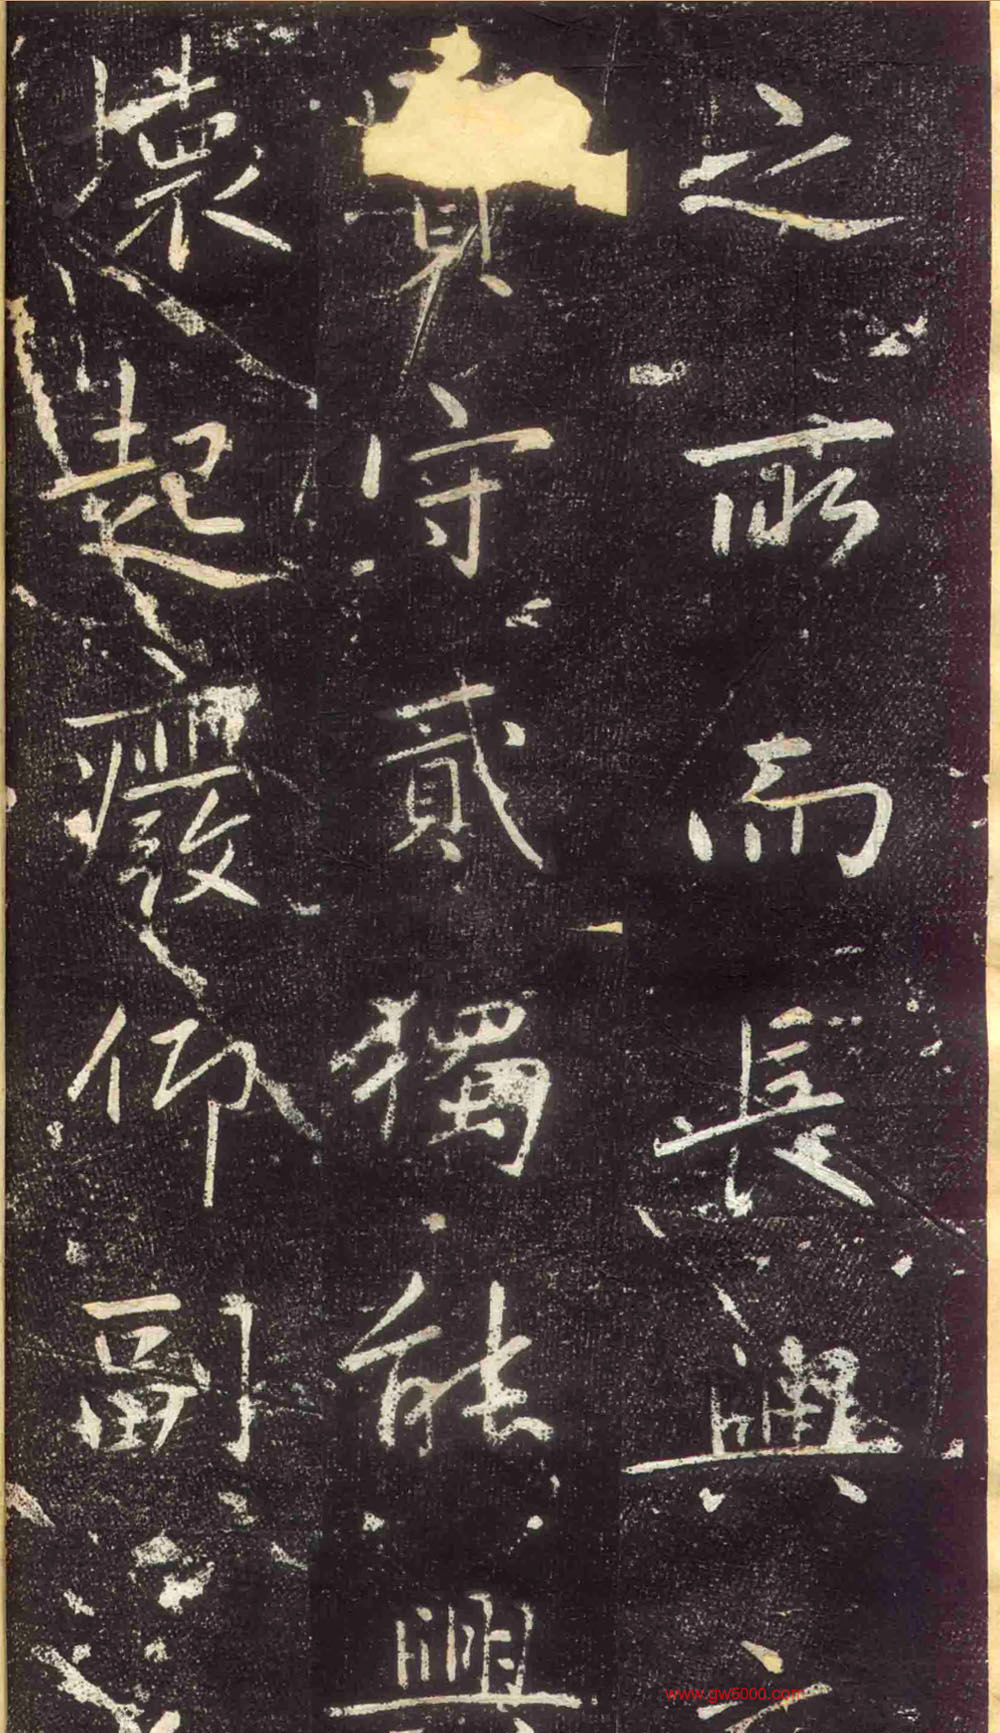 之所而長興
守貳獨能興
壞起癈仰副
www.gw5000.com